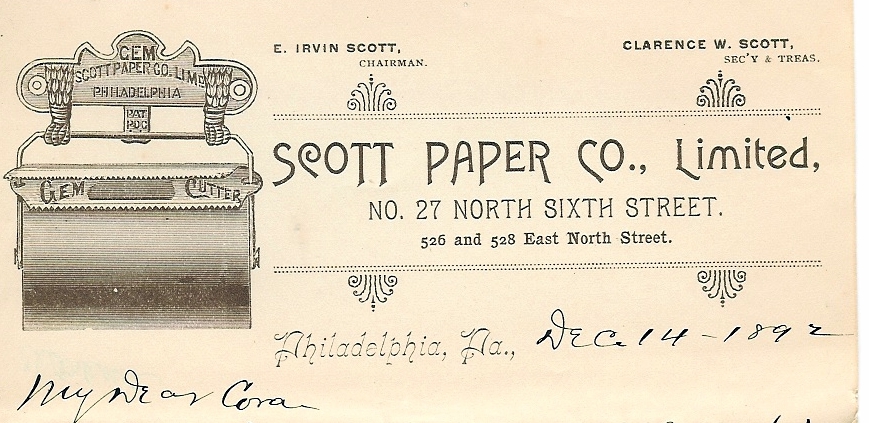 GEM
SCOTT PAPER CO. LIMD
PHILADELPHIA
PAT
PDG
GEM CUTTER
E. IRVIN SCOTT,
CHAIRMAN.
CLARENCE W. SCOTT,
SEC'Y & TREAS.
SCOTT PAPER CO., Limited,
NO. 27 NORTH SIXTH STREET.
526 and 528 East North Street.
Philadelphia, Pa., Dec. 14 - 1892
My Dear Cora